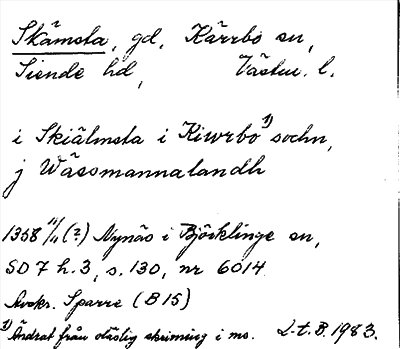 Skämsta, gd, Kärrbo sn,
Siende hd, Västm. l.
i Skiälmsta i Kiwrbo 1) sochn,
j Wässmannalandh
1358 11/11 (?) Nynäs i Björklinge sn,
SD 7 h. 3, s. 130, nr 6014
Avskr. Sparre (B 15)
1) Ändrat från oläslig skrivning i ms. L-t. B. 1983.